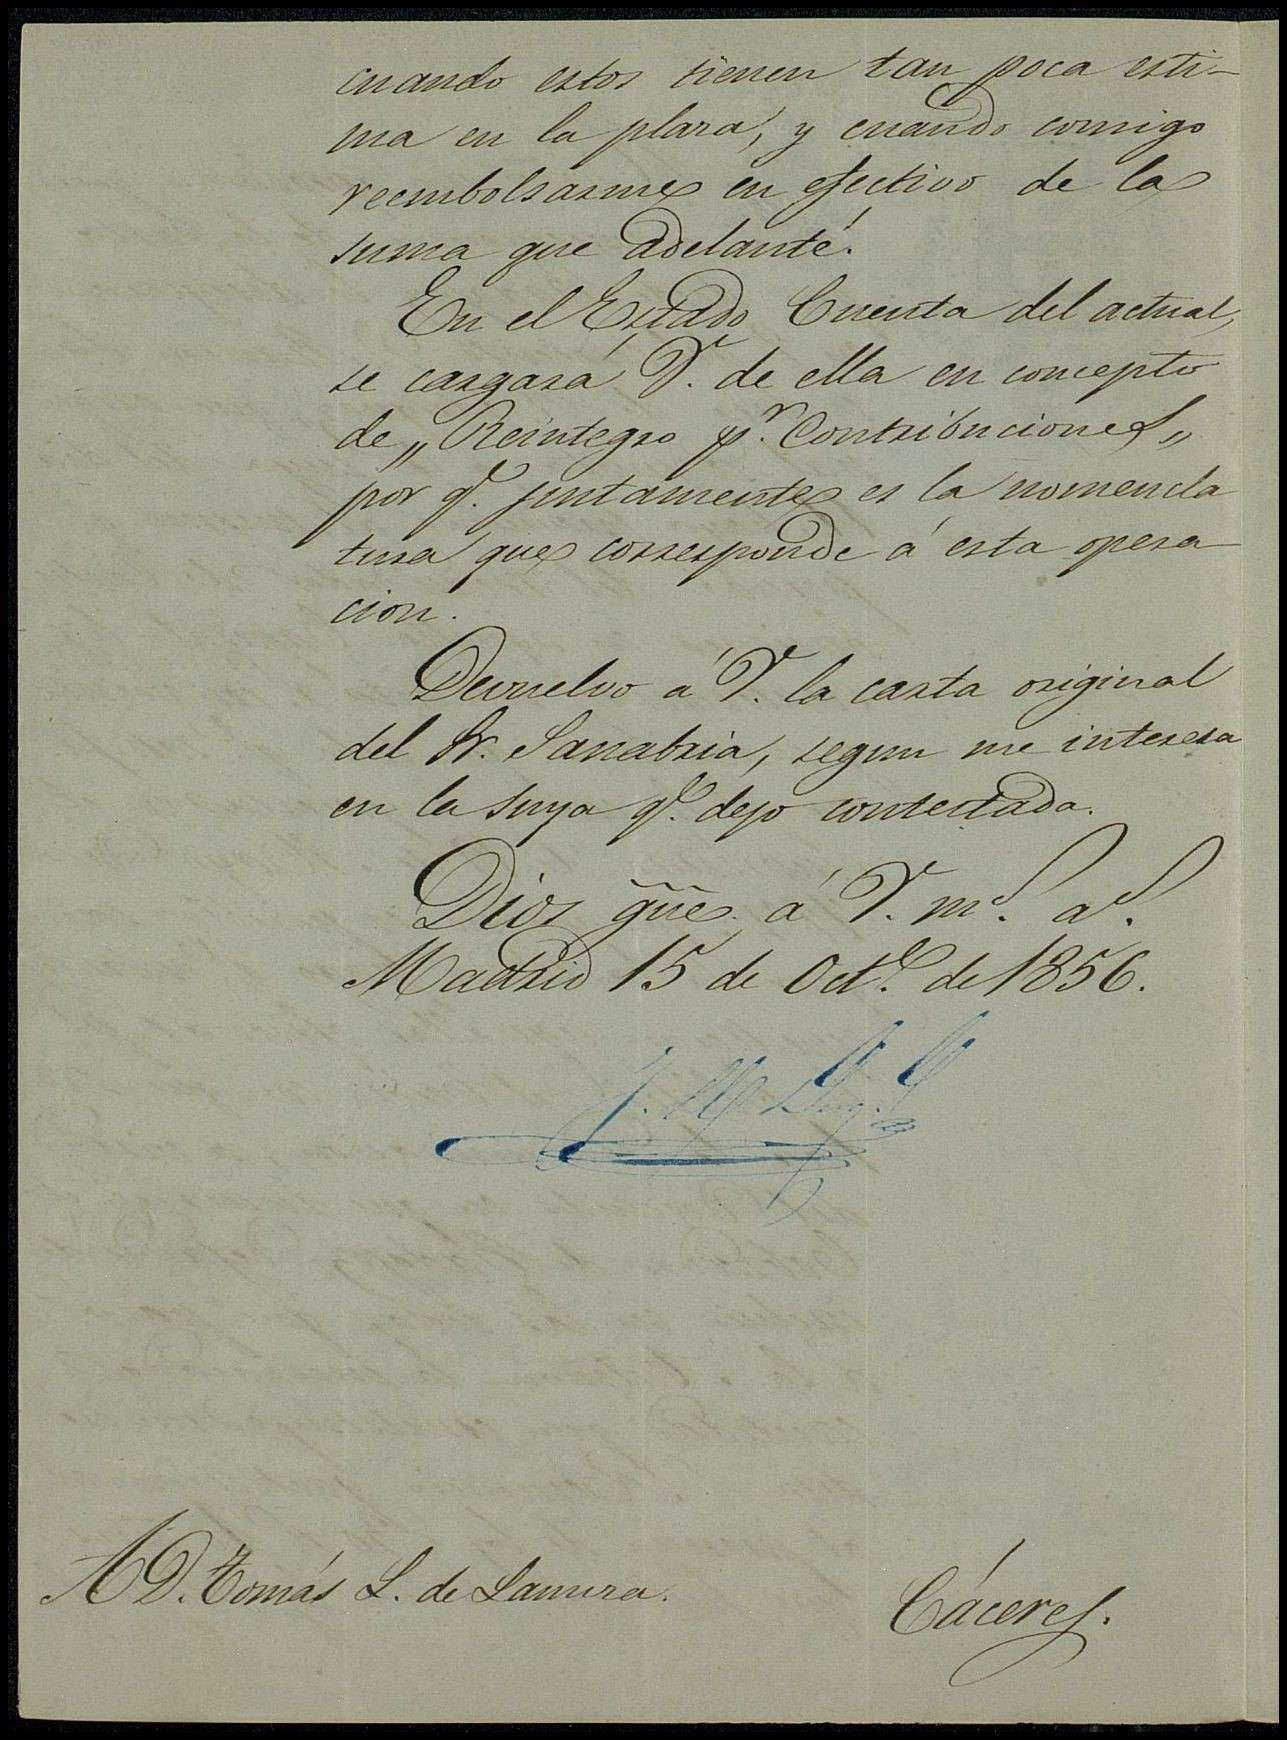 cuando estos tienen tan poca esti-
ma en la plaza, y cuando consigo
reembolsarme en efectivo de la
suma que adelanté.
En el Estado Cuenta del actual,
se cargará V. de ella en concepto
de „Reintegro p.r Contribuciones„
por q.e justamente es la nomencla
tura que corresponde á esta opera
cion.
Devuelvo á V. la carta original
del Sr. Sanabria, segun me interesa
en la suya q.e dejo contestada.
Dios gũe á V. m.s a.s
Madrid 15 de Oct.e de 1856.
A D. Tomás L. de
Cáceres.